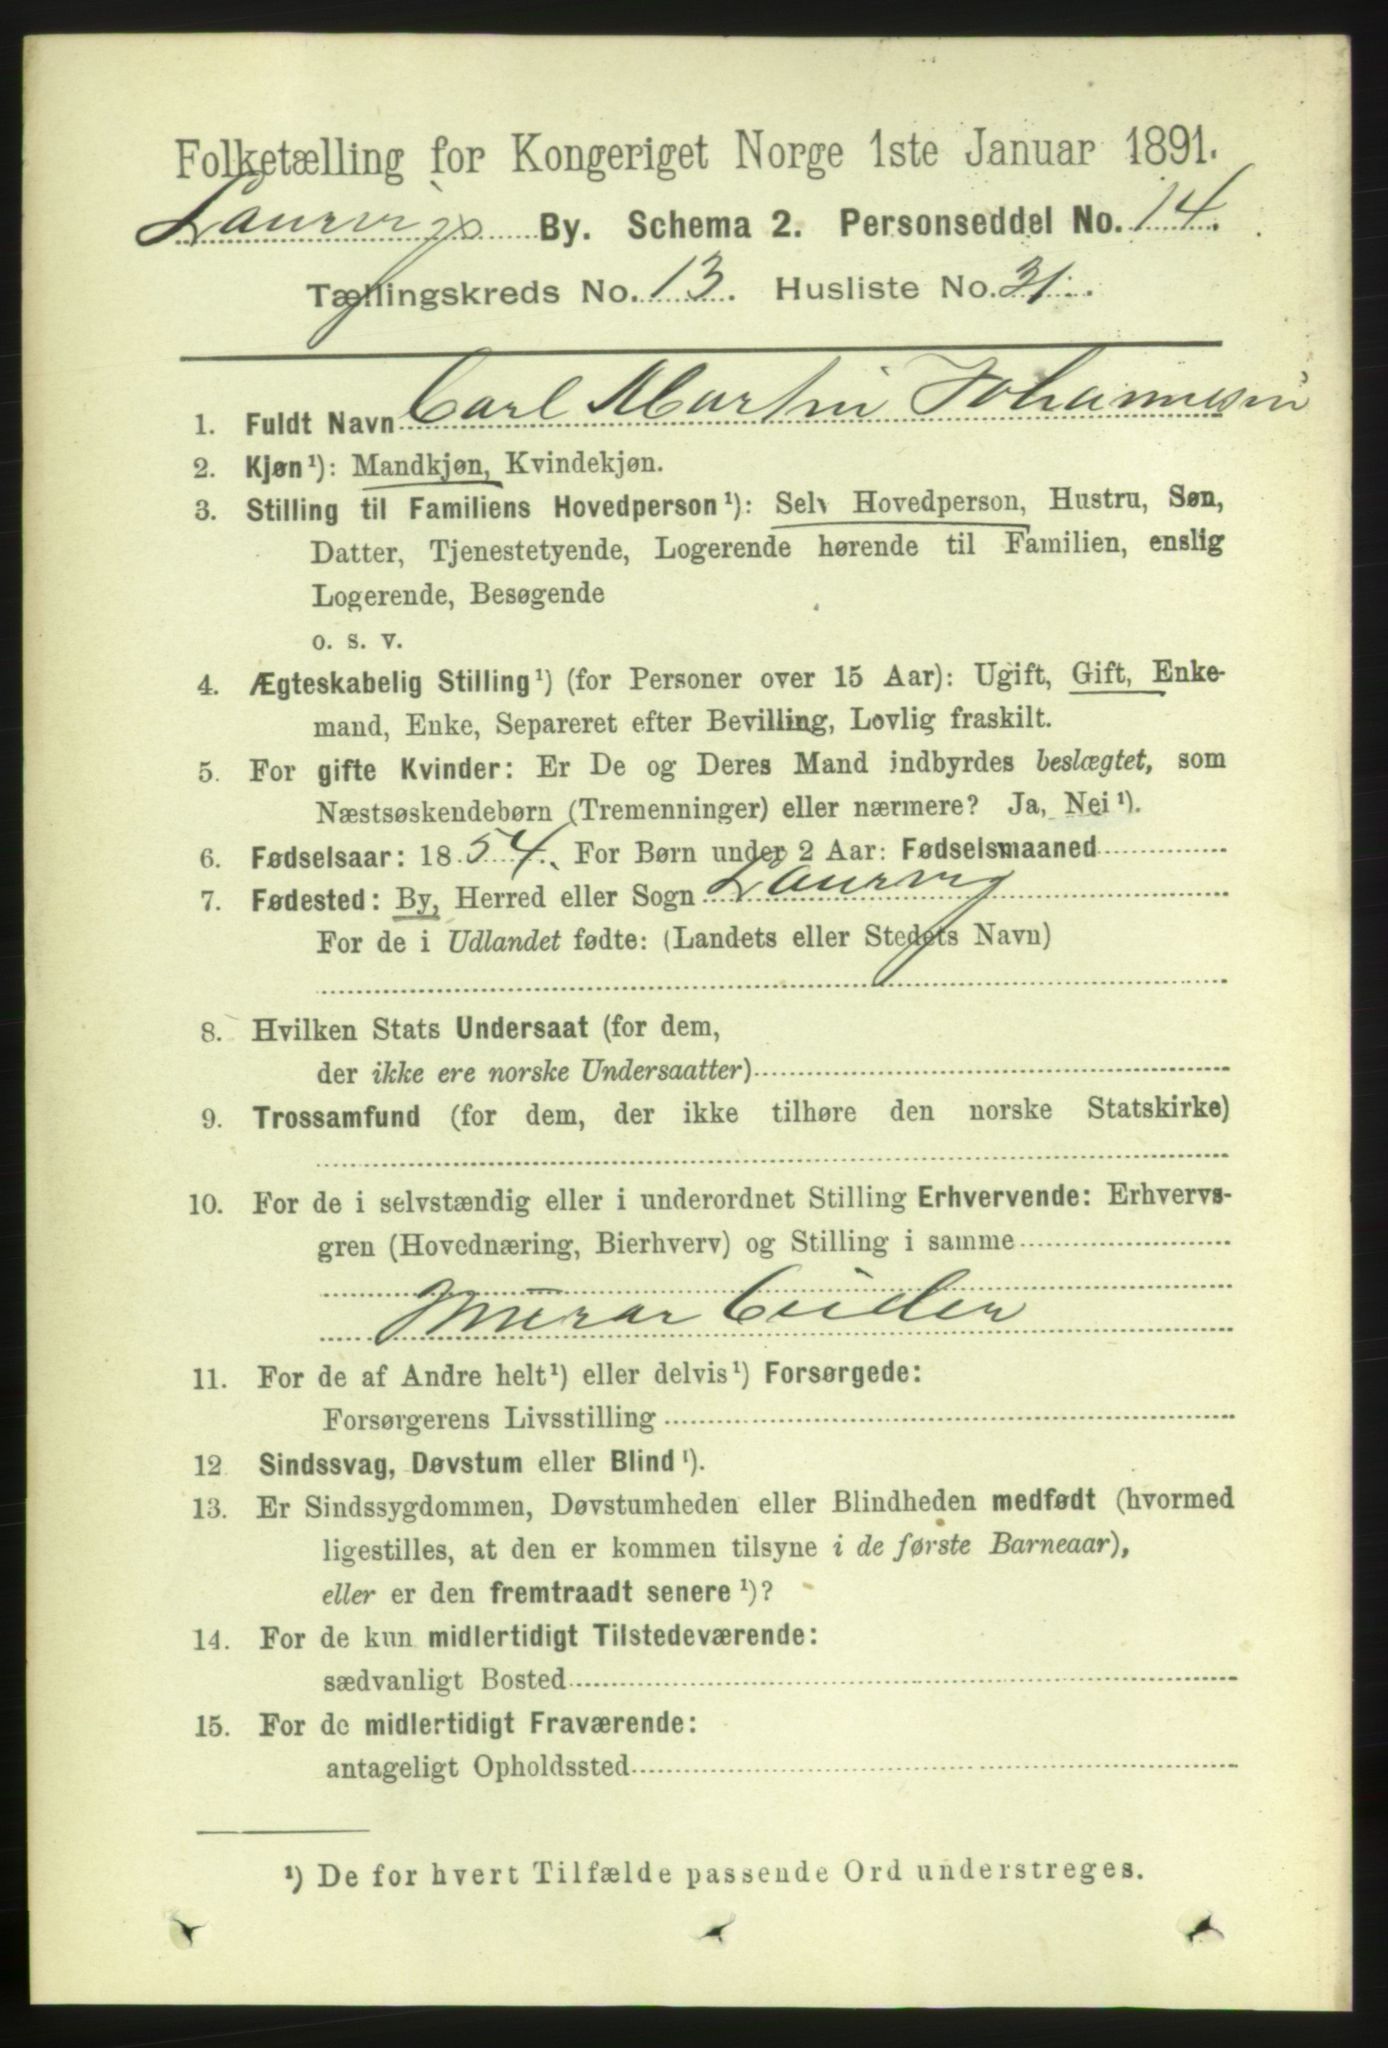 Folketælling for Kongeriget Norge 1ste Januar 1891.
Laurvigs By. Schema 2. Personseddel No. 14.
Tællingskreds No. 13. Husliste No. 31.
1. Fuldt Navn Carl Martin Johannesen
2. Kjøn¹): Mandkjøn, Kvindekjøn.
3. Stilling til Familiens Hovedperson¹): Selv Hovedperson, Hustru, Søn,
Datter, Tjenestetyende, Logerende hørende til Familien, enslig
Logerende, Besøgende
o. s. v.
4. Ægteskabelig Stilling¹) (for Personer over 15 Aar): Ugift, Gift, Enke-
mand, Enke, Separeret efter Bevilling, Lovlig fraskilt.
5. For gifte Kvinder: Er De og Deres Mand indbyrdes beslægtet, som
Næstsøskendebørn (Tremenninger) eller nærmere? Ja, Nei¹).
6. Fødselsaar: 1854. For Børn under 2 Aar: Fødselsmaaned
7. Fødested: By, Herred eller Sogn Laurvig
For de i Udlandet fødte: (Landets eller Stedets Navn)
8. Hvilken Stats Undersaat (for dem,
der ikke ere norske Undersaatter)
9. Trossamfund (for dem, der ikke tilhøre den norske Statskirke)
10. For de i selvstændig eller i underordnet Stilling Erhvervende: Erhvervs-
gren (Hovednæring, Bierhverv) og Stilling i samme
Murar
11. For de af Andre helt¹) eller delvis¹) Forsørgede:
Forsørgerens Livsstilling
12 Sindssvag, Døvstum eller Blind¹).
13. Er Sindssygdommen, Døvstumheden eller Blindheden medfødt (hvormed
ligestilles, at den er kommen tilsyne i de første Barneaar),
eller er den fremtraadt senere¹)?
14. For de kun midlertidigt Tilstedeværende:
sædvanligt Bosted
15. For de midlertidigt Fraværende:
antageligt Opholdssted
¹) De for hvert Tilfælde passende Ord understreges.